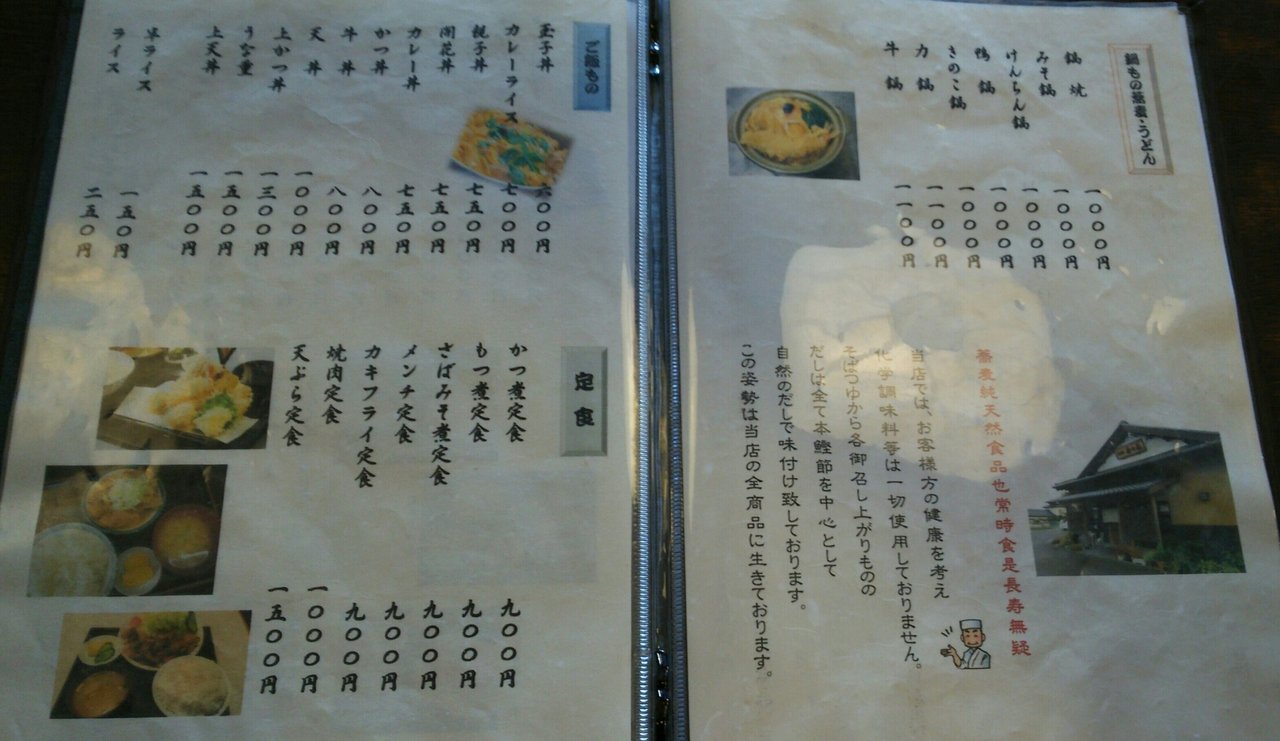 鍋もの蕎麦・うどん
鍋焼 一〇〇〇円
みそ鍋 一〇〇〇円
けんちん鍋 一〇〇〇円
鴨鍋 一〇〇〇円
きのこ鍋 一〇〇〇円
力鍋 一一〇〇円
牛鍋 一一〇〇円
蕎麦純天然食品也常時食是長寿無疑
当店では、お客様方の健康を考え
化学調味料等は一切使用しておりません。
そばつゆから各御召し上がりものの
だしは全て本鰹節を中心として
自然のだしで味付け致しております。
この姿勢は当店の全商品に生きております。
ご飯もの
玉子丼 六〇〇円
カレーライス 七〇〇円
親子丼 七五〇円
開花丼 七五〇円
カレー丼 七五〇円
かつ丼 八〇〇円
牛丼 八〇〇円
天丼 一〇〇〇円
上かつ丼 一三〇〇円
うな重 一五〇〇円
上天丼 一五〇〇円
半ライス 一五〇円
ライス 二五〇円
定食
かつ煮定食 九〇〇円
もつ煮定食 九〇〇円
さばみそ煮定食 九〇〇円
メンチ定食 九〇〇円
カキフライ定食 九〇〇円
焼肉定食 一〇〇〇円
天ぷら定食 一五〇〇円